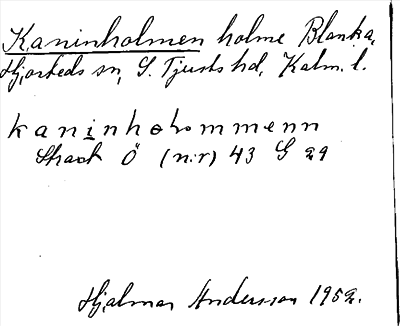 Kaninholmen holme Blanka,
Hjorteds sn, S. Tjusts hd, Kalm. l.
kaninhoɫommenn
Ö (n:r) 43 G 29
Hjalmar Andersson 1952.